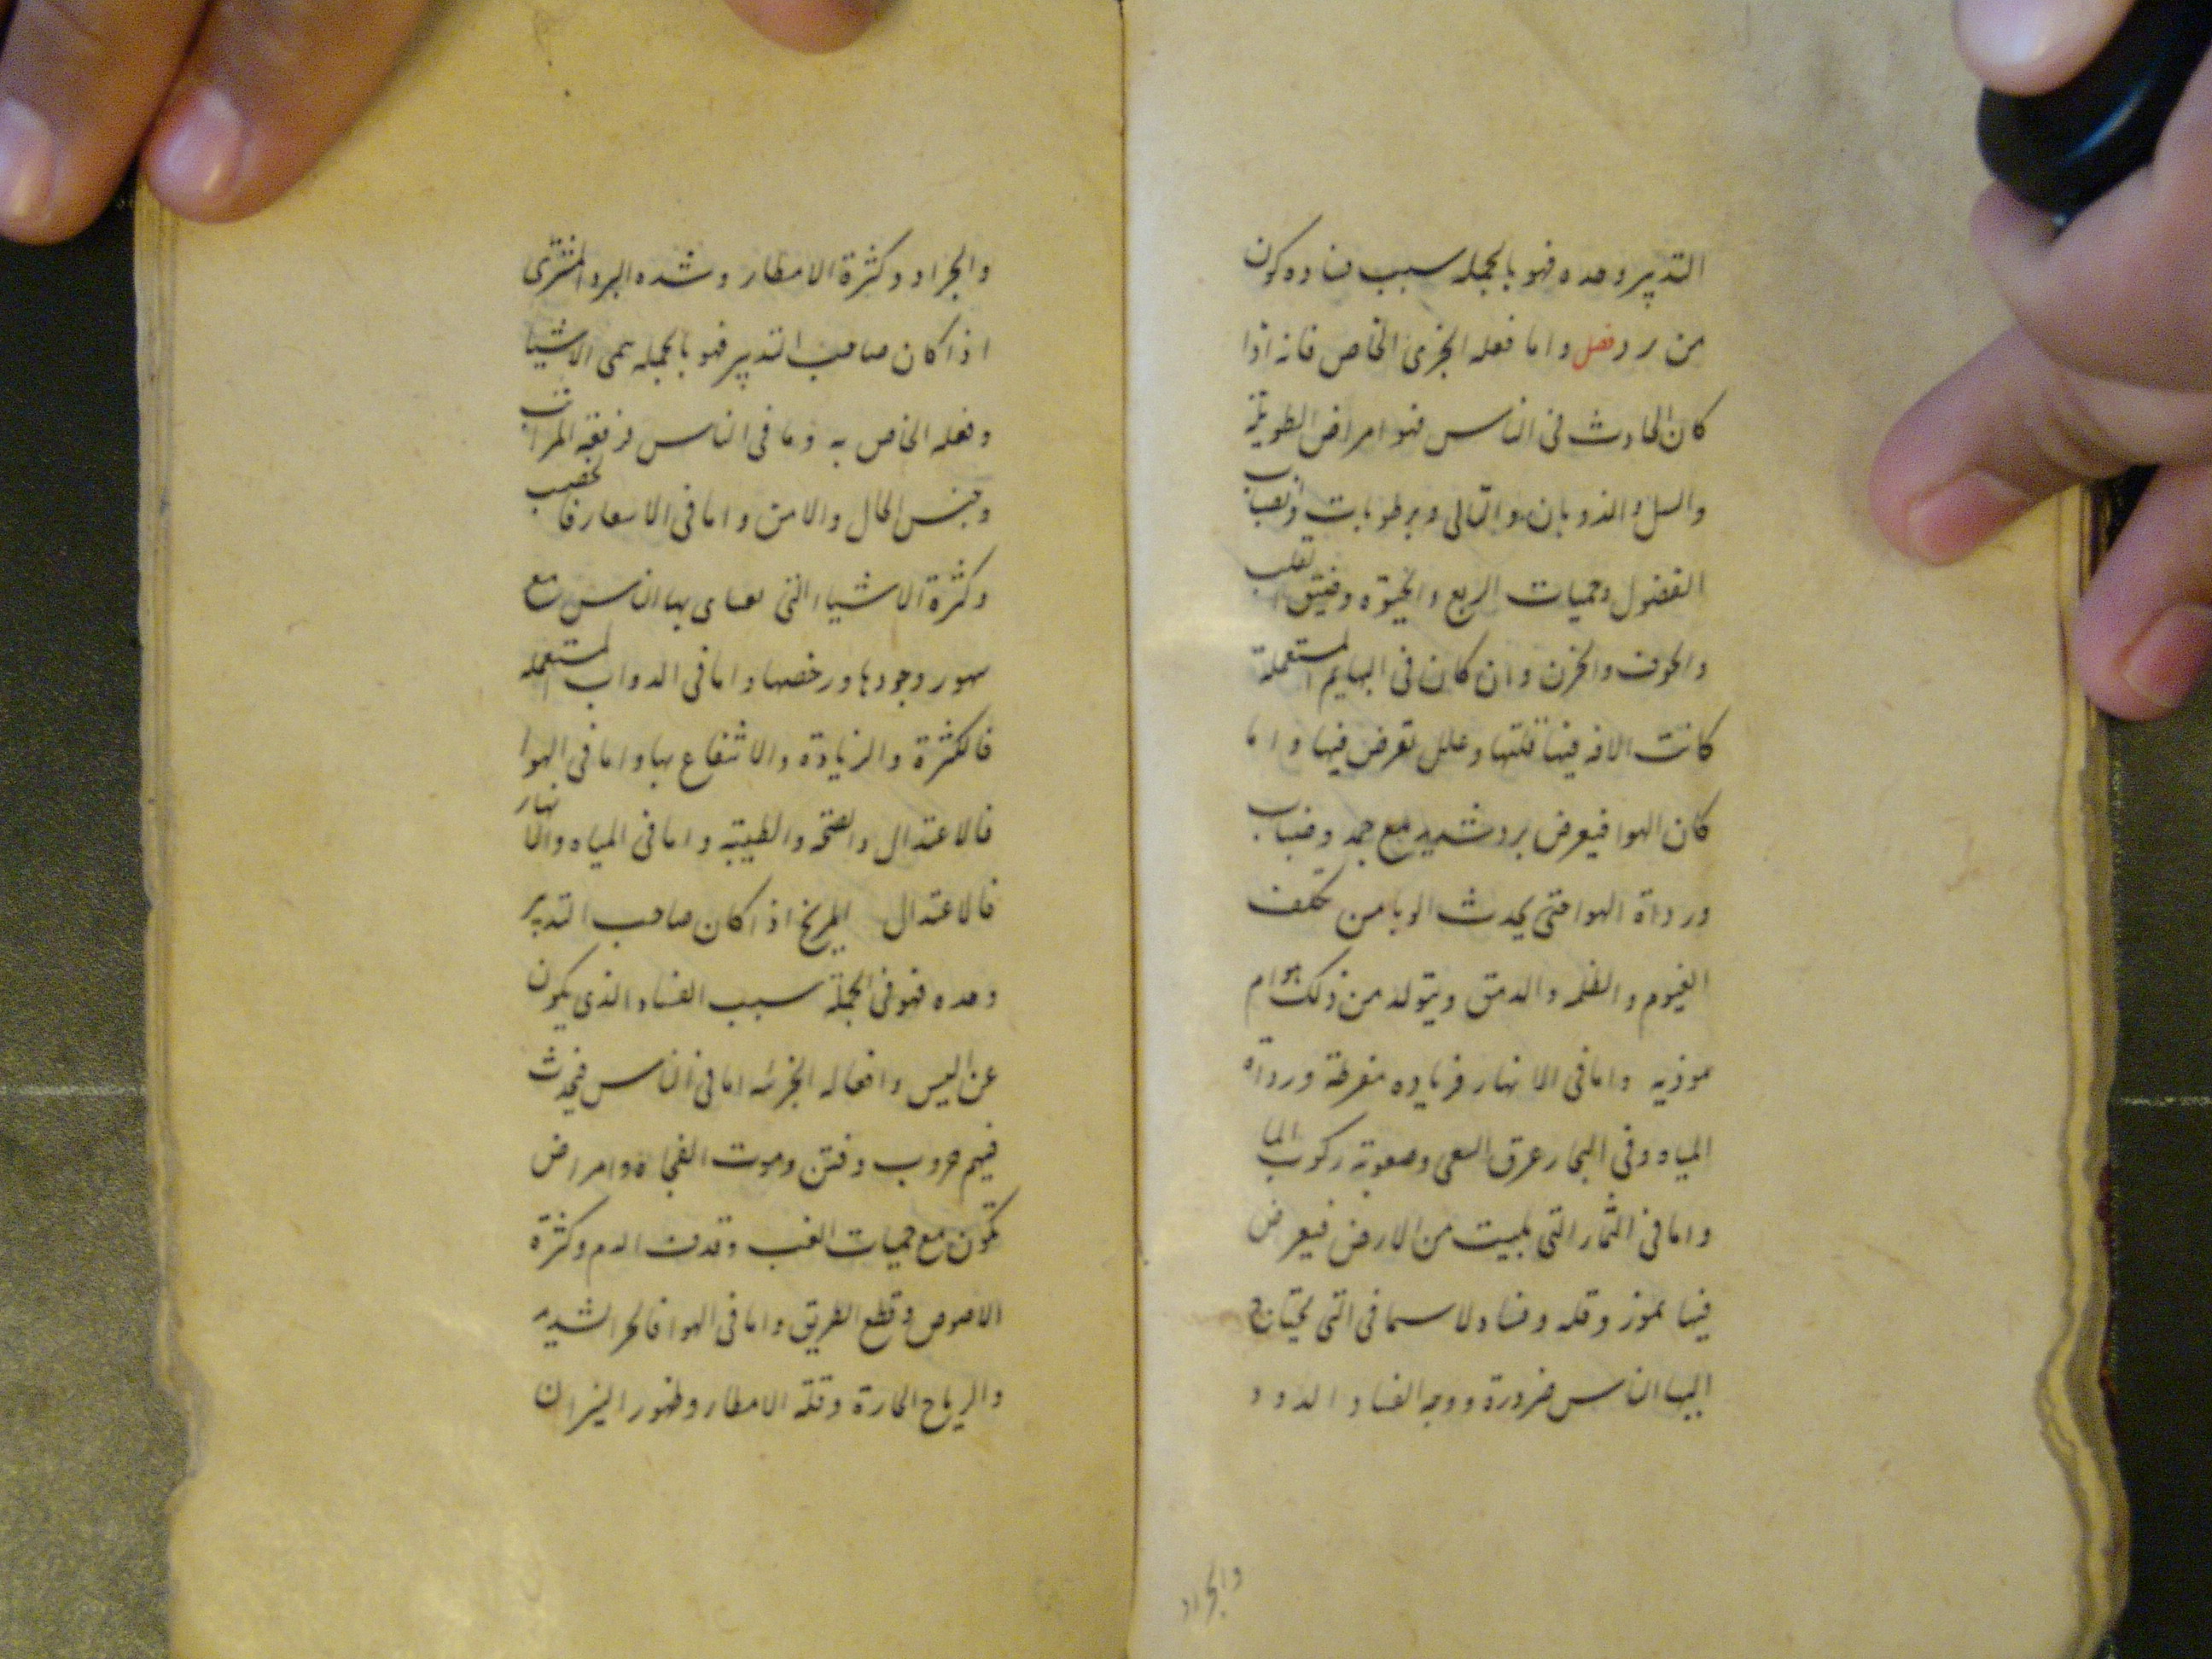 التدبير وحده فهو بالجمله سبب فساده كون
من برد فصل واما فعله الجزئ الخاص فانه اذا
كان الحادث فى الناس فهو امراض الطويلة
والسل والذوبان و وبرطوبات وانصباب
الفضول وحميات الربع و وضيق القلب
والخوف والحزن وان كان فى البهايم المستعملة
كانت الافه فيها قلتها وعلل تعرض فيها واما
كان الهوا فيعرض برد شديد مع جمد وضباب
ورداة الهوا حتى يحدث الوبا من تكثف
الغيوم والظلمه والدمق ويتولد من ذلك هوام
موذيه واما فى الانهار فزياده مفرطة ورداة
المياه وفى البحار عرق السعى وصعوبة ركوب الما
واما فى الثمار التى من الارض فيعرض
فيها وقله وفساد لا سما فى التى يحتاج
اليها الناس ضرورة ووجه الفساد الدود
والجراد
والجراد وكثرة الامطار وشده البرد المشترى
اذا كان صاحب التدبير فهو بالجمله الاشيا
وفعله الخاص به وما فى الناس فرفعة المراتب
وحسن الحال والامن واما فى الاسعار فالخصب
وكثرة الاشياء التى بها الناس مع
وجودها ورخصها واما فى الدواب المستعمله
فالكثرة والزيادة والانتفاع بها واما فى الهوا
فالاعتدال والصحه والطيبة واما فى المياه والانهار
فالاعتدال المريخ اذا كان صاحب التدبير
وحده فهو فى الجملة سبب الفساد الذى يكون
عن اليبس وافعاله الجزئه اما فى الناس فيحدث
فيهم حروب وفتن وموت الفجاة وامراض
تكون مع حميات الغب وقذف الدم وكثرة
الاصوص وقطع الطريق واما فى الهوا فالحر الشديد
والرياح الحارة وقلة الامطار وظهور النيران